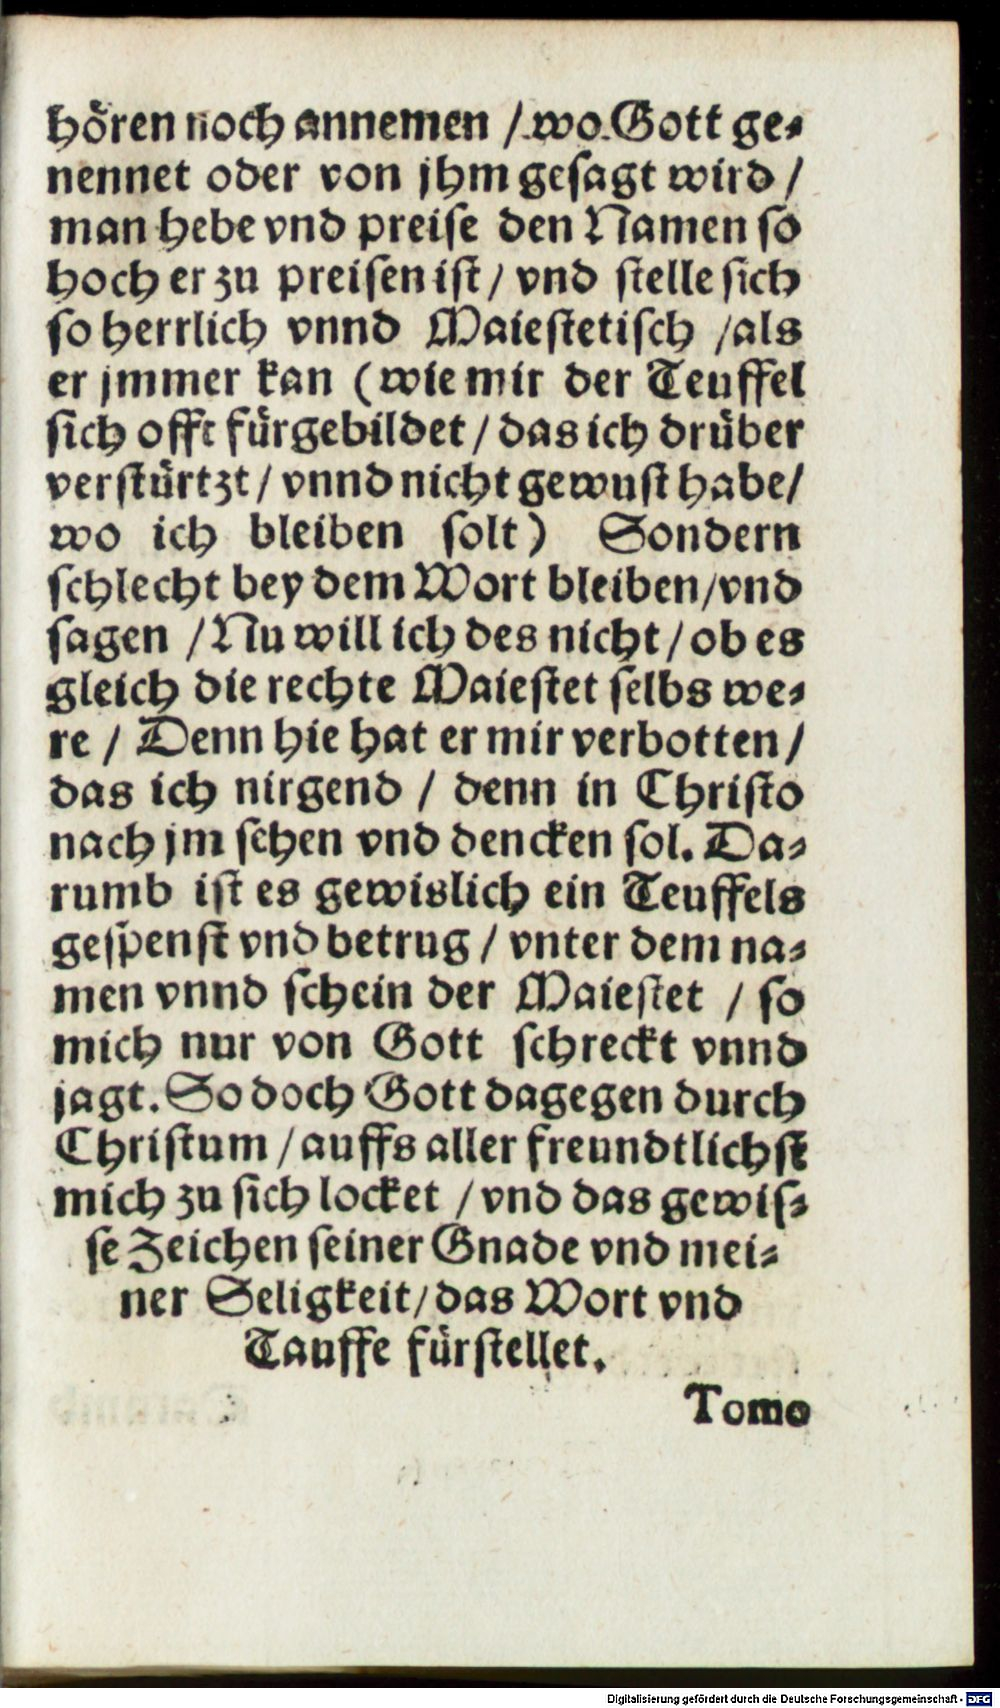 hören noch annemen / wo Gott ge-
nennet oder von jhm gesagt wird /
man hebe vnd preise den Namen so
hoch er zu preisen ist / vnd stelle sich
so herrlich vnnd Maiestetisch / als
er jmmer kan (wie mir der Teuffel
sich offt fürgebildet / das ich drüber
verstürtzt / vnnd nicht gewust habe /
wo ich bleiben solt) Sondern
schlecht bey dem Wort bleiben / vnd
sagen / Nu will ich des nicht / ob es
gleich die rechte Maiestet selbs we-
re / Denn hie hat er mir verbotten /
das ich nirgend / denn in Christo
nach jm sehen vnd dencken sol. Da-
rumb ist es gewislich ein Teuffels
gespenst vnd betrug / vnter dem na-
men vnnd schein der Maiestet / so
mich nur von Gott schreckt vnnd
jagt. So doch Gott dagegen durch
Christum / auffs aller freundtlichst
mich zu sich locket / vnd das gewis-
se Zeichen seiner Gnade vnd mei-
ner Seligkeit / das Wort vnd
Tauffe fürstellet.
Tomo
Digitalisierung gefördert durch die Deutsche Forschungsgemeinschaft - DFG